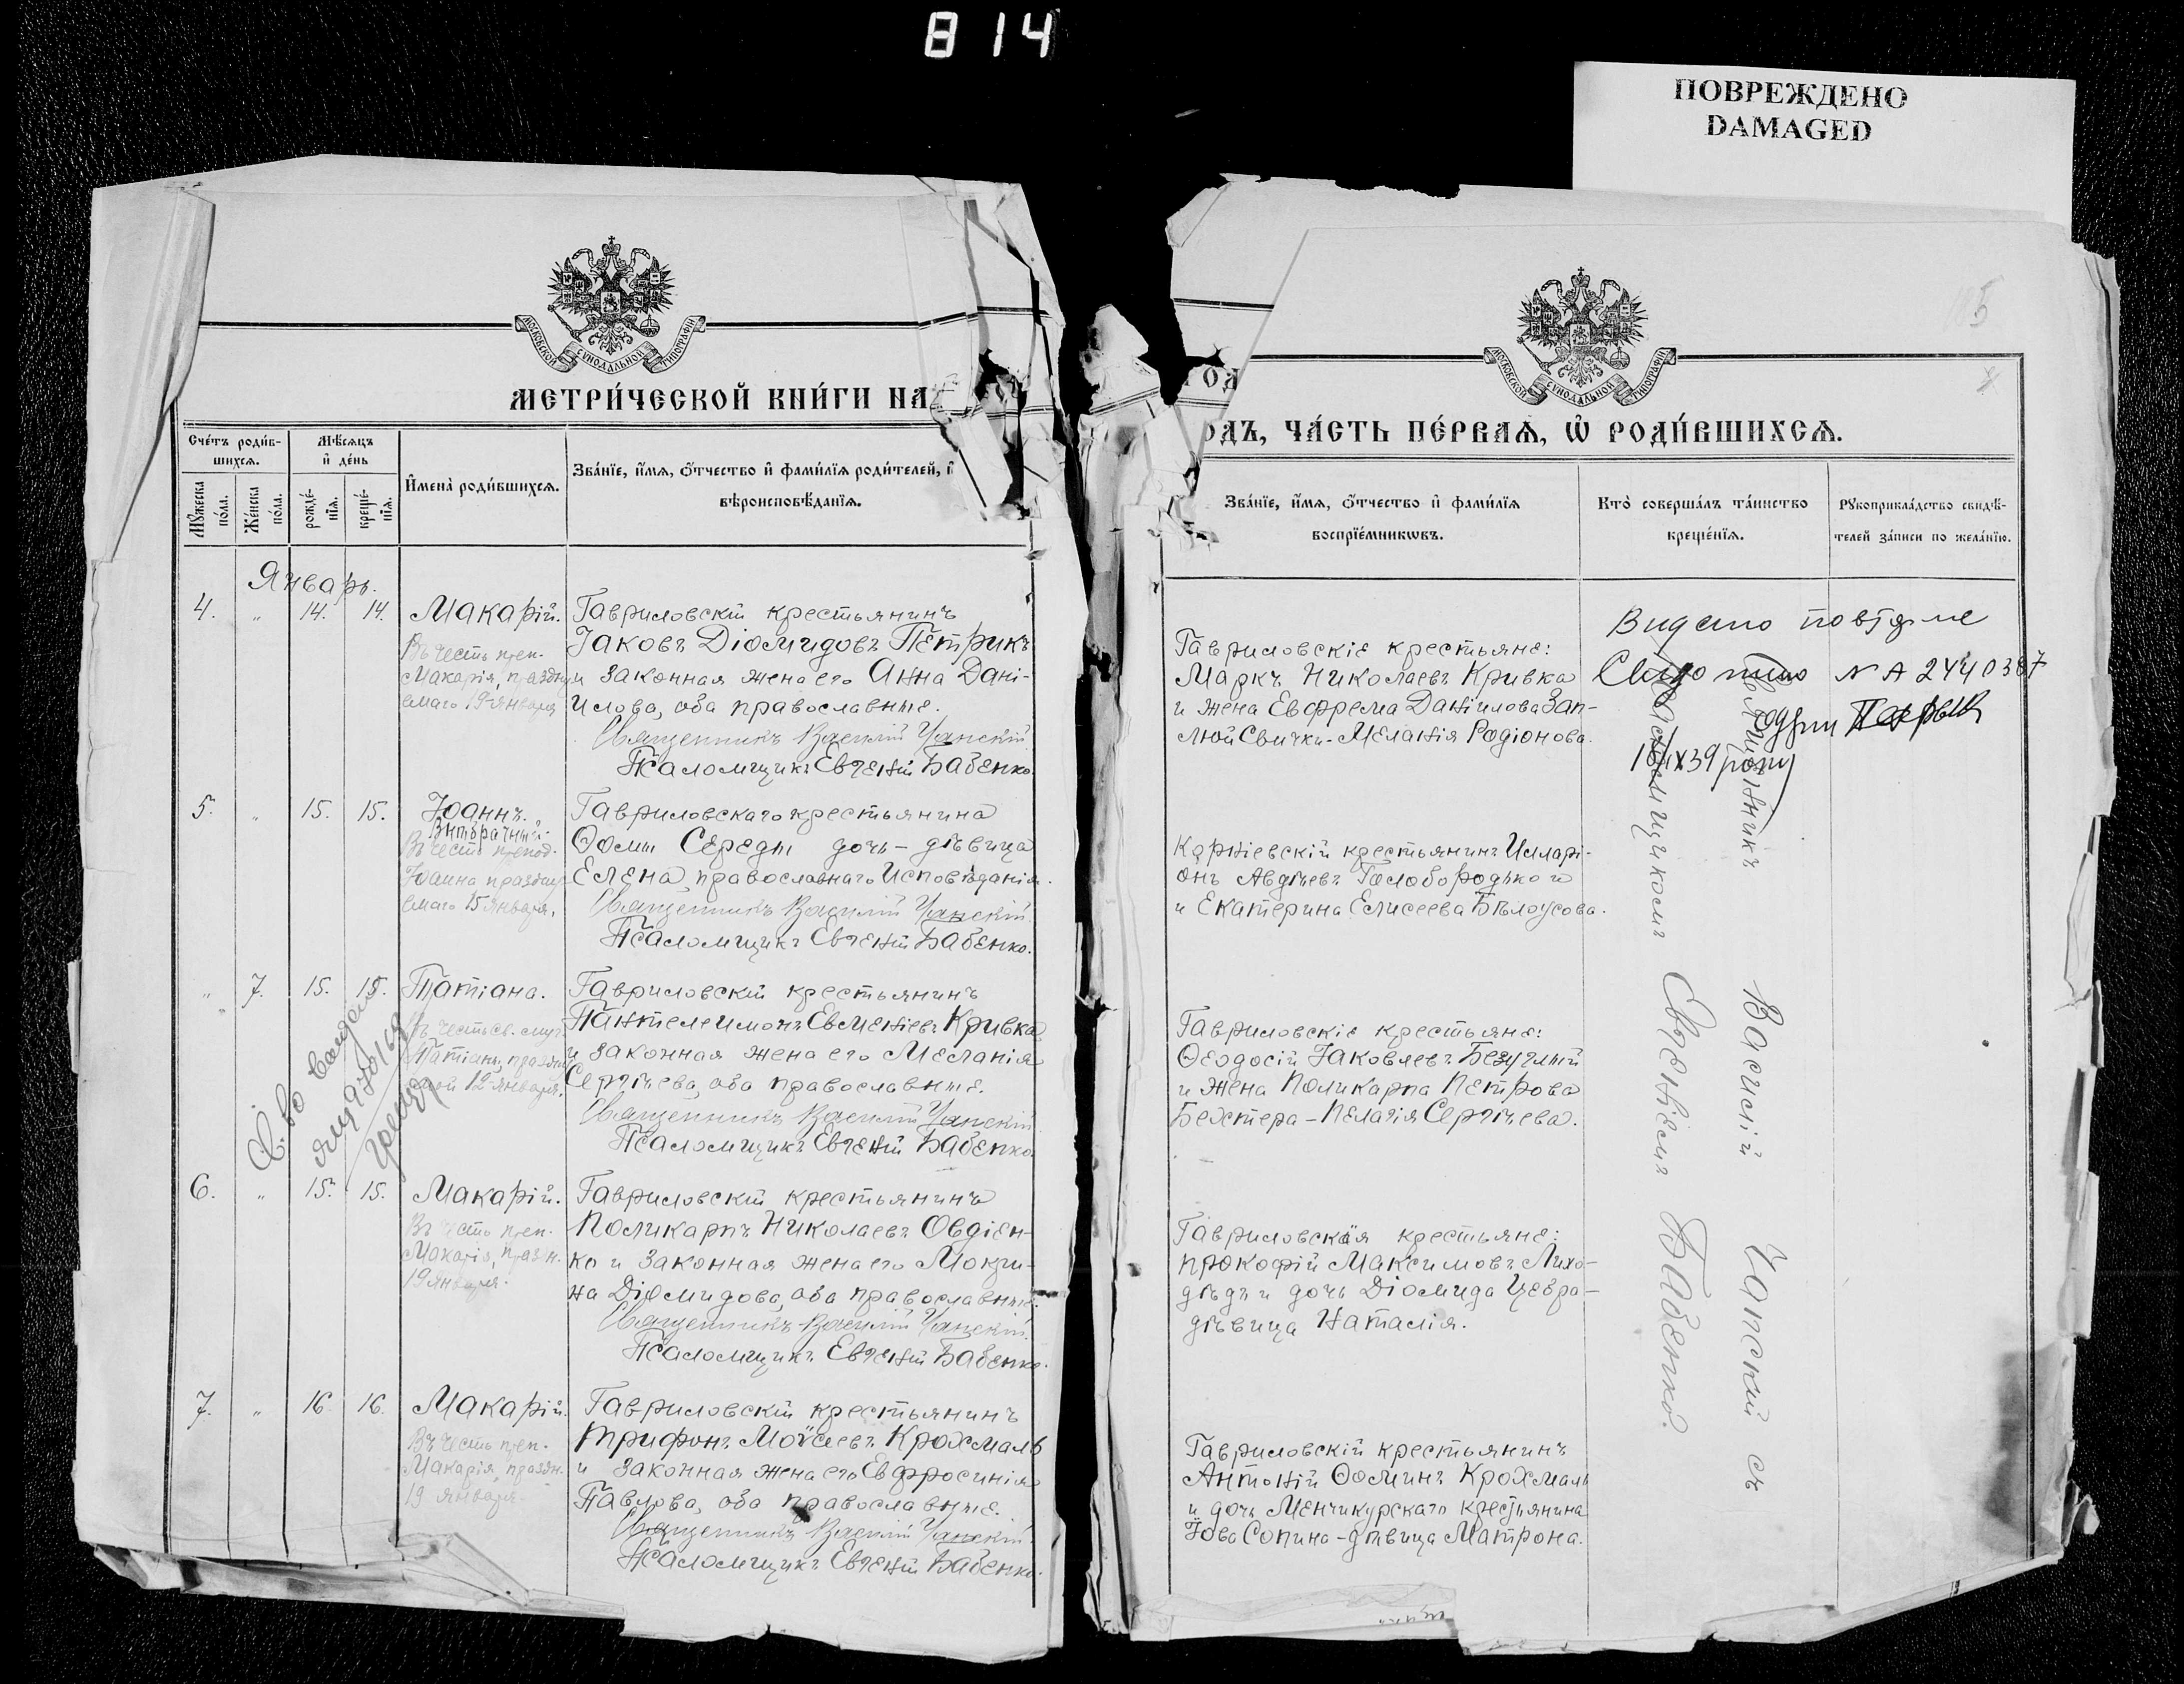 814
ПОВРЕЖДЕНО
DAMAGED
5
МОСКОВСКОЙ СѴНОДАЛЬНОЙ ТИПОГРАФІИ
МОСКОВСКОЙ СѴНОДАЛЬНОЙ ТИПОГРАФІИ
МЕТРИ́ЧЕСКОЙ КНИ́ГИ НА
ГОД
ОДЪ, ЧА́СТЬ ПЕ́РВАѦ, Ѡ РОДИ́ВШИХСѦ.
Сче́тъ роди́в-
шихсѧ.
Мꙋ́жеска по́ла.
Же́нска по́ла.
Мѣ́сѧцъ
и҆ де́нь
рожде́-нїѧ.
креще́-нїѧ.
И҆мена̀ роди́вшихсѧ.
Зва́нїе, и҆́мѧ, ѻ҆́тчество и҆ фами́лїѧ роди́телей, и҆
вѣроисповѣ́данїѧ.
Зва́нїе, и҆́мѧ, ѻ҆́тчество и҆ фами́лїѧ
воспрїе́мникѡвъ.
Кто̀ соверша́лъ та́инство
креще́нїѧ.
Рꙋкоприкла́дство свидѣ́-
телей за́писи по жела́нїю.
Январь.
4. „ 14. 14. Макарій.
Въ честь преп.
Макарія, праздну
емаго 19 января
Гавриловскій крестьянинъ
Іаковъ Діомидовъ Петрикъ
и законная жена его Анна Дані-
илова, оба православные.
Священникъ Василій Чанскій
Псаломщикъ Евгеній Бабенко.
Гавриловскіе крестьяне:
Маркъ Николаевъ Кривка
и жена Ефрема Даніилова Зап-
люй Свички - Меланія Родіонова.
Видано повт
Свідотво N А 2440387
1939 року
5. „ 15. 15. Іоаннъ.
Внѣбрачный.
Въ честь препод.
Іоанна празdну
емаго 15 января.
Гавриловскаго крестьянина
Ѳомы Середы дочь - дѣвица
Елена, православнаго исповѣданія.
Священникъ Василій Чанскій
Псаломщикъ Евгеній Бабенко.
Корніевскій крестьянинъ Иларі-
онъ Авдѣевъ Голобородько и
и Екатерина Елисеева Бѣлоусова.
„ 7. 15. 15. Татіана.
Въ честь св. муч.
Татіаны, праздну
емой 12 января.
Гавриловскій крестьянинъ
Пантелеимонъ Евменіевъ Кривка
и законная жена его Меланія
Сергѣева, оба православные.
Священникъ Василій Чанскій
Псаломщикъ Евгеній Бабенко
Гавриловскіе крестьяне:
Ѳеодосій Іаковлевъ Безуглый
и жена Поликарпа Петрова
Бехтера - Пелагія Сергѣева.
6. „ 15. 15. Макарій.
Въ честь преп.
Макарія, праздн.
19 января.
Гавриловскій крестьянинъ
Поликарпъ Николаевъ Овдіен-
ко и законная жена его Мокри-
на Діомидова, оба православные.
Священникъ Василій Чанскій
Псаломщикъ Евгеній Бабенко.
Гавриловскія крестьяне:
Прокофій Максимовъ Лихо-
дѣдъ и дочь Діомида Цебра-
дѣвица Наталія.
7. „ 16. 16. Макарій.
Въ честь преп.
Макарія, праздн.
19 января.
Гавриловскій крестьянинъ
Трифонъ Моѵсеевъ Крохмаль
и законная жена его Евфросинія
Павлова, оба православные.
Священникъ Василій Чанскій
Псаломщикъ Евгеній Бабенко.
Гавриловскій крестьянинъ
Антоній Ѳоминъ Крохмаль
и дочь Менчикурскаго крестьянина
Іова Сопина - дѣвица Матрона.
Священникъ Василій Чанскій съ
Псаломщикомъ Евгеніемъ Бабенко.